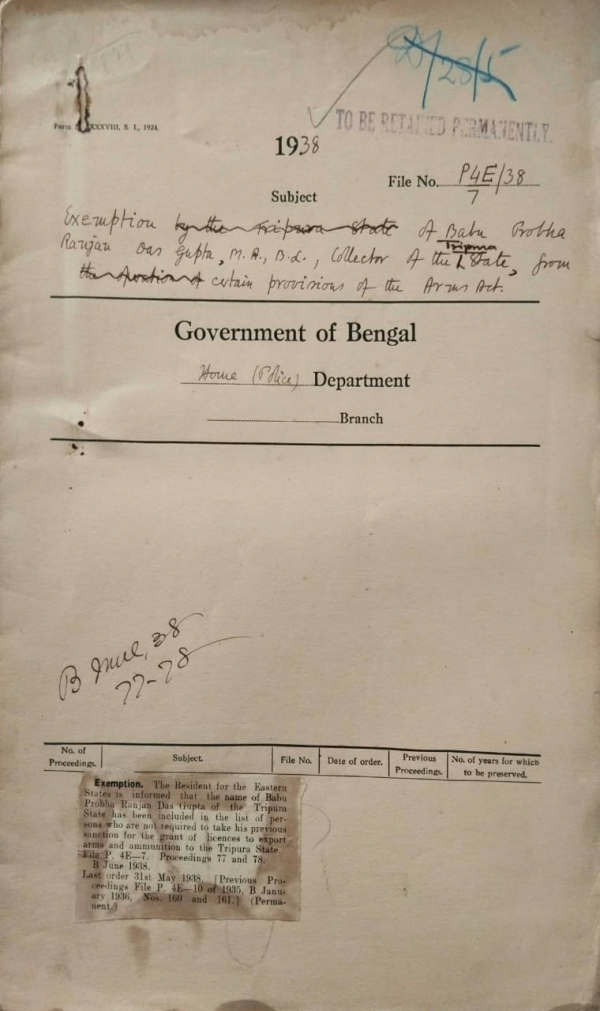 D/28/5
XXXVIII, S. I., 1924.
TO BE RETAINED PERMANENTLY.
1938
File No. P4E/38
7
Subject
Exemption by the Tripura State of Babu Probha
Ranjan Das Gupta, M.A., B.L., Collector of the Tripura State, from
the operation of certain provisions of the Arms Act.
Government of Bengal
Home (Police) Department
Branch
B June, 38
77-78
No. of Proceedings. Subject. File No. Date of order. Previous Proceedings. No. of years for which to be preserved.
Exemption. The Resident for the Eastern
States is informed that the name of Babu
Probha Ranjan Das Gupta of the Tripura
State has been included in the list of per-
sons who are not required to take his previous
sanction for the grant of licences to export
arms and ammunition to the Tripura State.
File P. 4E—7. Proceedings 77 and 78.
B June 1938.
Last order 31st May 1938. [Previous Pro-
ceedings File P. 4E—10 of 1935, B Janu-
ary 1936, Nos. 160 and 161.] (Perma-
nent.)